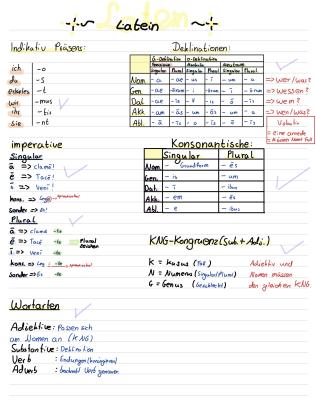 Latein
Latein
Indikativ Präsens:
Deklinationen:
ich -o
du -s
er/sie/es -t
wir -mus
ihr -tis
sie -nt
ā-Deklination o-Deklination
Feminina Maskulin Neutrum
Singular Plural Singular Plural Singular Plural
Nom -a -ae -us -i -um -a => wer/was?
Gen -ae -ārum -i -ōrum -i -ōrum => wessen?
Dat -ae -is -o -is -o -is => wem?
Akk -am -ās -um -ōs -um -a => wen/was?
Abl. -ā -is -o -is -o -is
Vokativ
= eine anrede
imperative
Singular
ā => clamā!
ē => Tacē!
ī => Veni!
kons. => Lege
sonder => Es!
Plural
ā => clamā -te
ē => Tacē -te
ī => veni -te
kons. => Leg -i -te
sonder => Es -te
Plural
Konsonantische:
Singular Plural
Nom - Grundform -ēs
Gen. -is -um
Dat. -i -ibus
Akk -em -ēs
Abl. -e -ibus
KNG-Kongruenz (Sub.+Adj.)
K = Kasus (Fall)
N = Numerus (Singular/Plural)
G = Genus (Geschlecht)
Adjektiv und
Nomen müssen
den gleichen KNG.
Wortarten
Adjektive: Passen sich
am Nomen an (KNG)
Substantive: Deklination
Verb : Endungen (konjugieren)
Adverb :